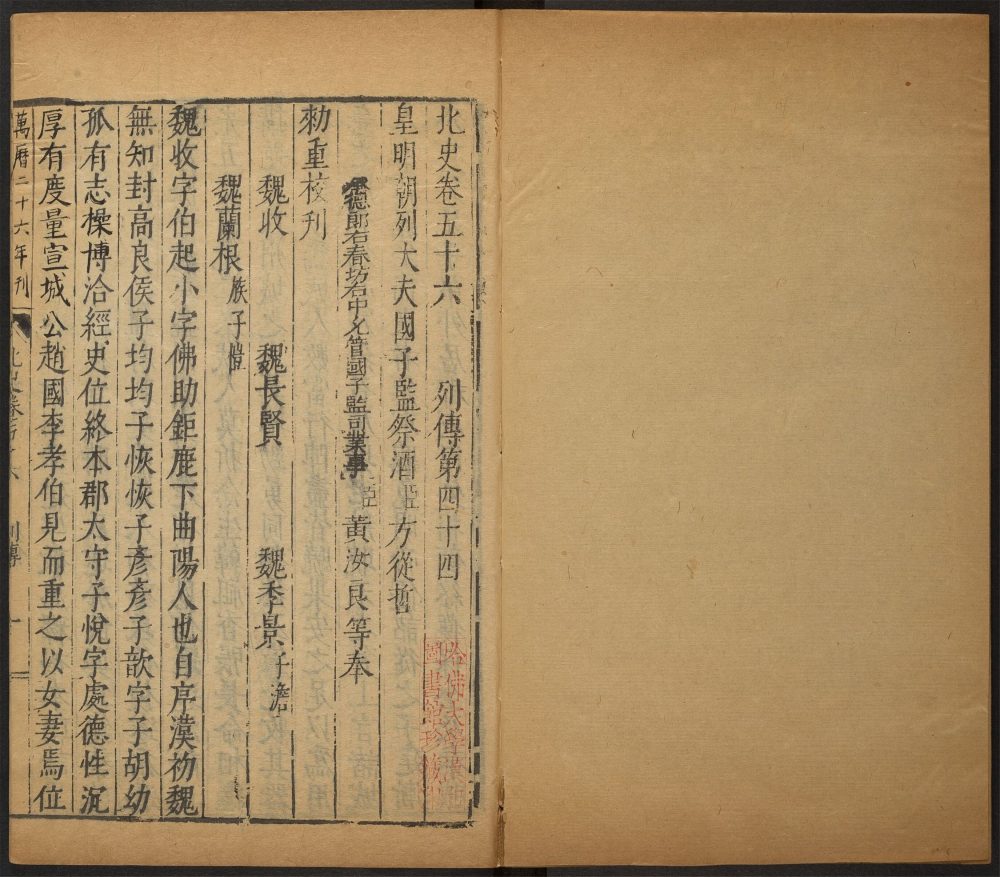 北史卷五十六 列傳第四十四
皇明朝列大夫國子監祭酒臣方從哲
德郎右春坊右中允管國子監司業事臣黃汝良等奉
勑重校刊
魏收 魏長賢 魏季景子澹
魏蘭根族子愷
魏收字伯起小字佛助鉅鹿下曲陽人也自序漢初魏
無知封高良侯子均均子恢恢子彥彥子歆字子胡幼
孤有志操博洽經史位終本郡太守子悅字處德性沉
厚有度量宣城公趙國李孝伯見而重之以女妻焉位
萬曆二十六年刊 北史卷五十六 列傳 一
哈佛大學漢和
圖書館珍藏印